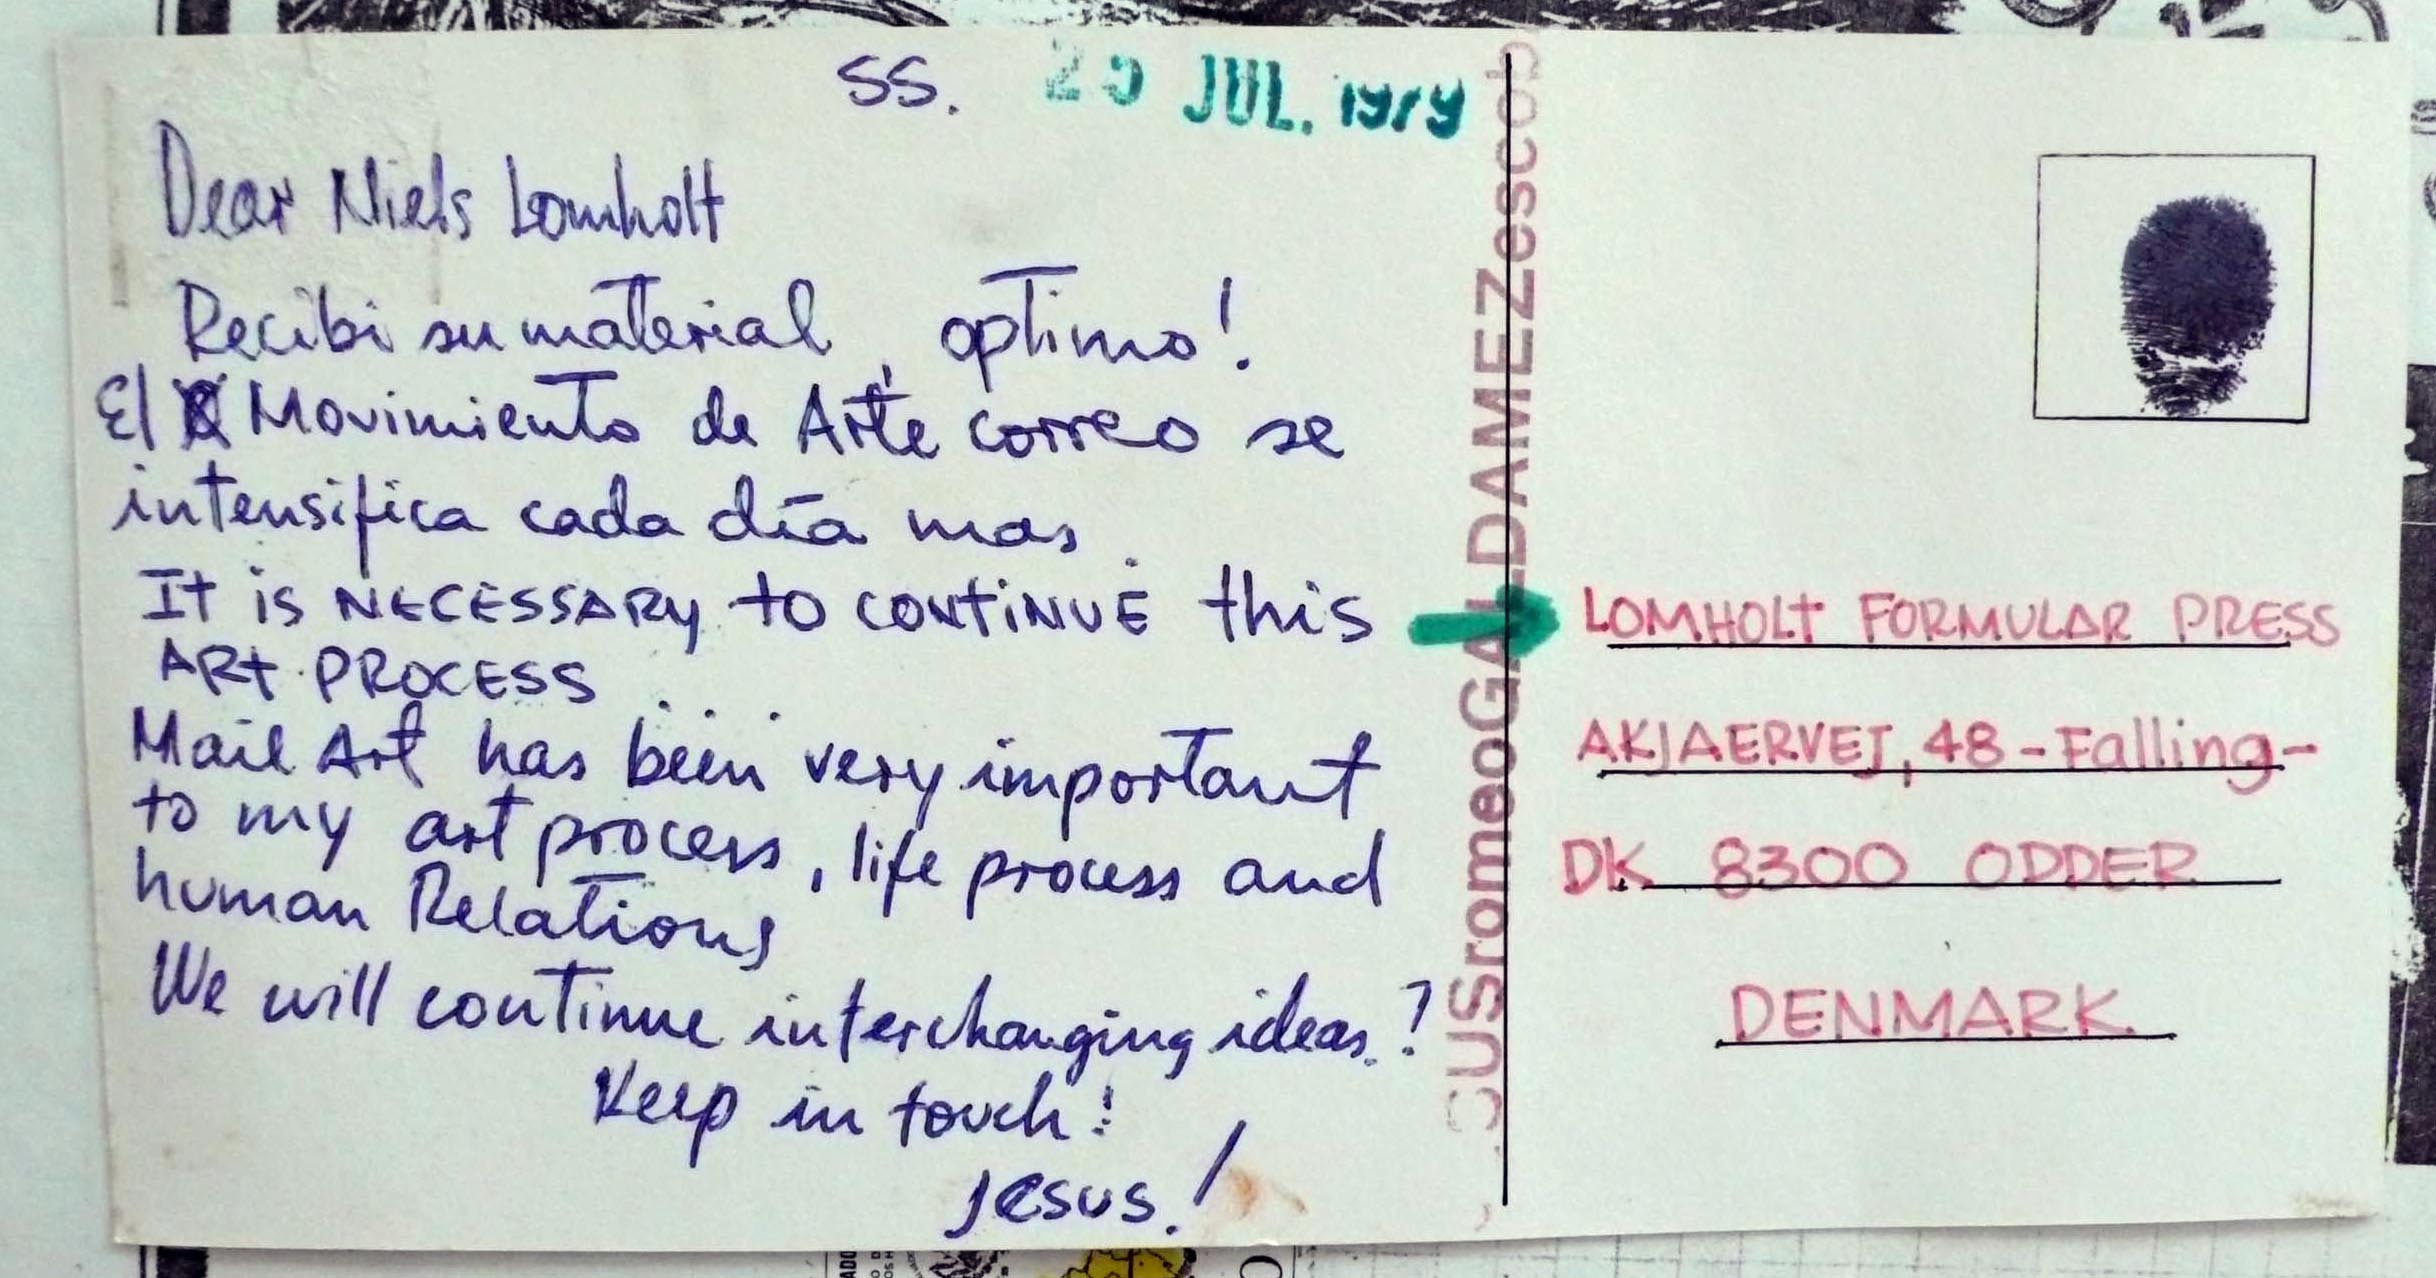 SS. 20 JUL. 1979
Dear Niels Lomholt
Recibi su material, optimo!
El Movimiento de Arte correo se
intensifica cada día mas.
It is NECESSARY to CONTINUE this
ART PROCESS...
Mail Art has been very important
to my art process, life process and
human Relations
We will continue interchanging ideas.?
Keep in touch!
Jesus.!
CUSromeoGALDAMEZescob
LOMHOLT FORMULAR PRESS
AKJAERVEJ, 48 - Falling -
DK 8300 ODDER
DENMARK.